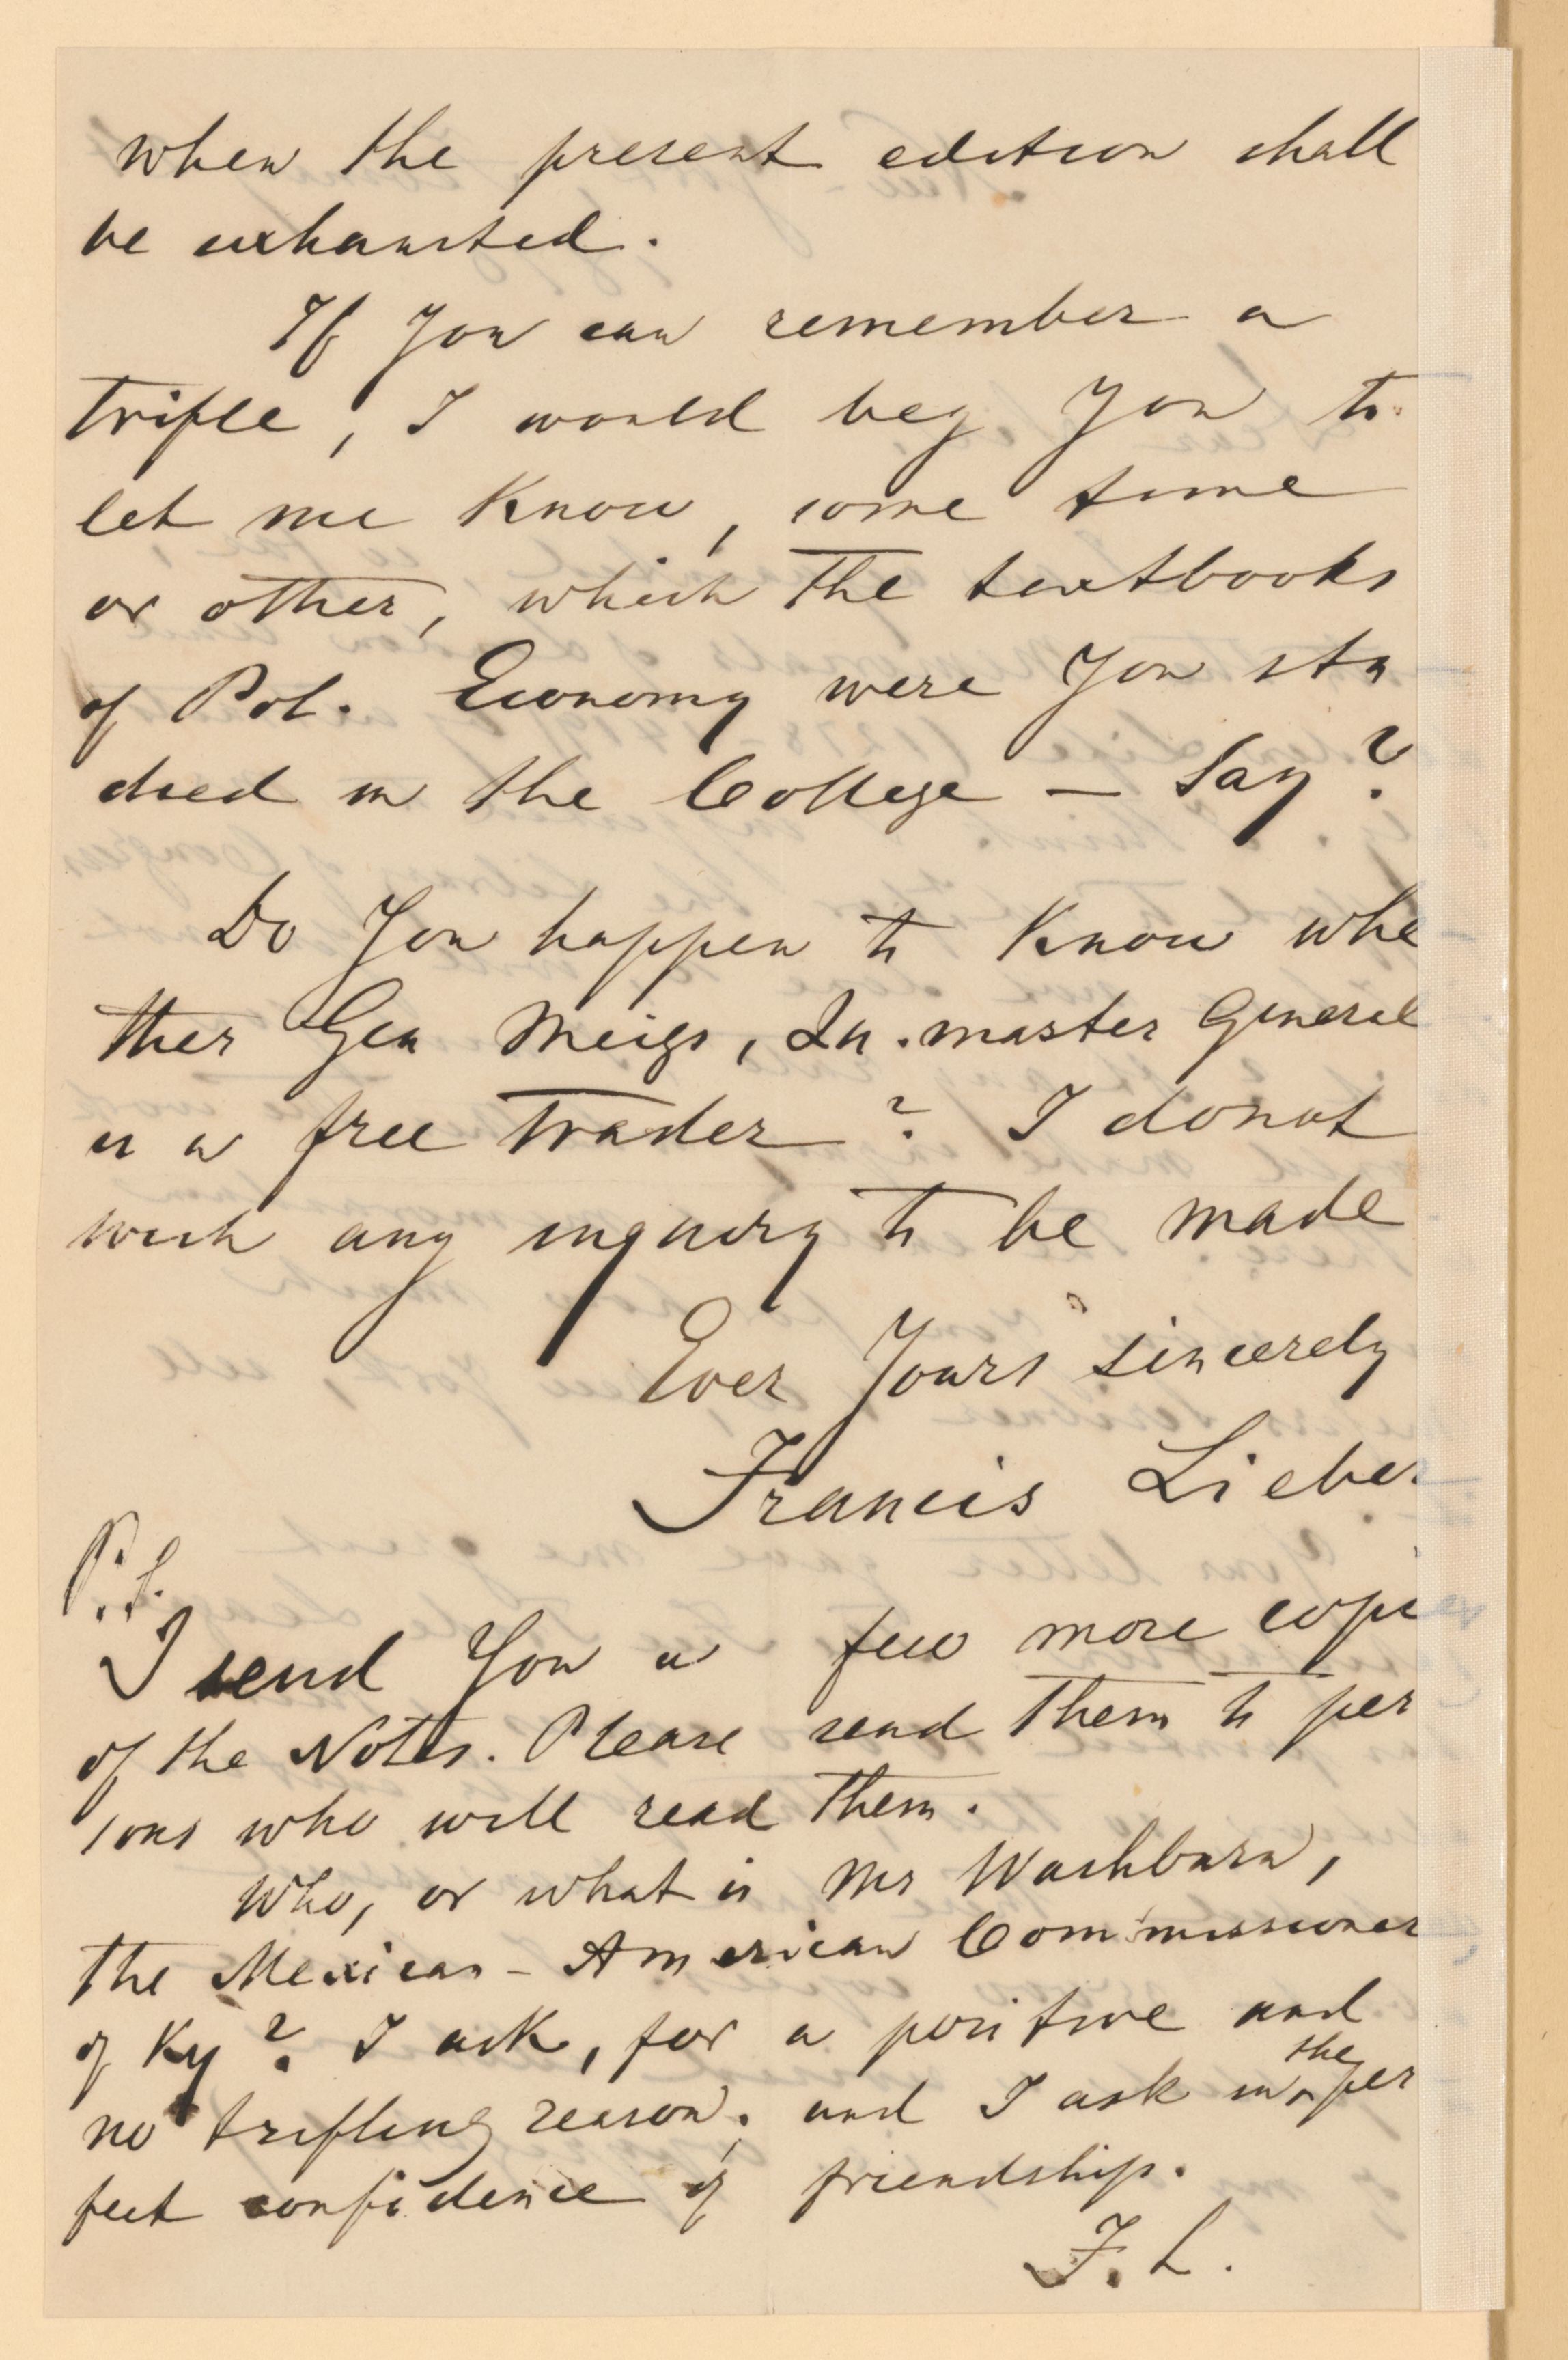 when the present edition shall
be exhausted.
If You can remember a
trifle, I would beg You to
let me Know, some time
or other, which the textbooks
of Pol. Economy were You stu
died in the College — Say?
Do You happen to Know whe
ther Gen Meigs, Qu. master General
is a free trader? I donot
wish any inquiry to be made
Ever Yours sincerely
Francis Lieber
P.S.
I send You a few more copies
of the Notes. Please send them to per
sons who will read them.
Who, or what is Mr Washburn,
the Mexican-American Commissioner
of Ky? I ask, for a positive and
no trifling reason; and I ask in the per
fect confidence of friendship.
F. L.